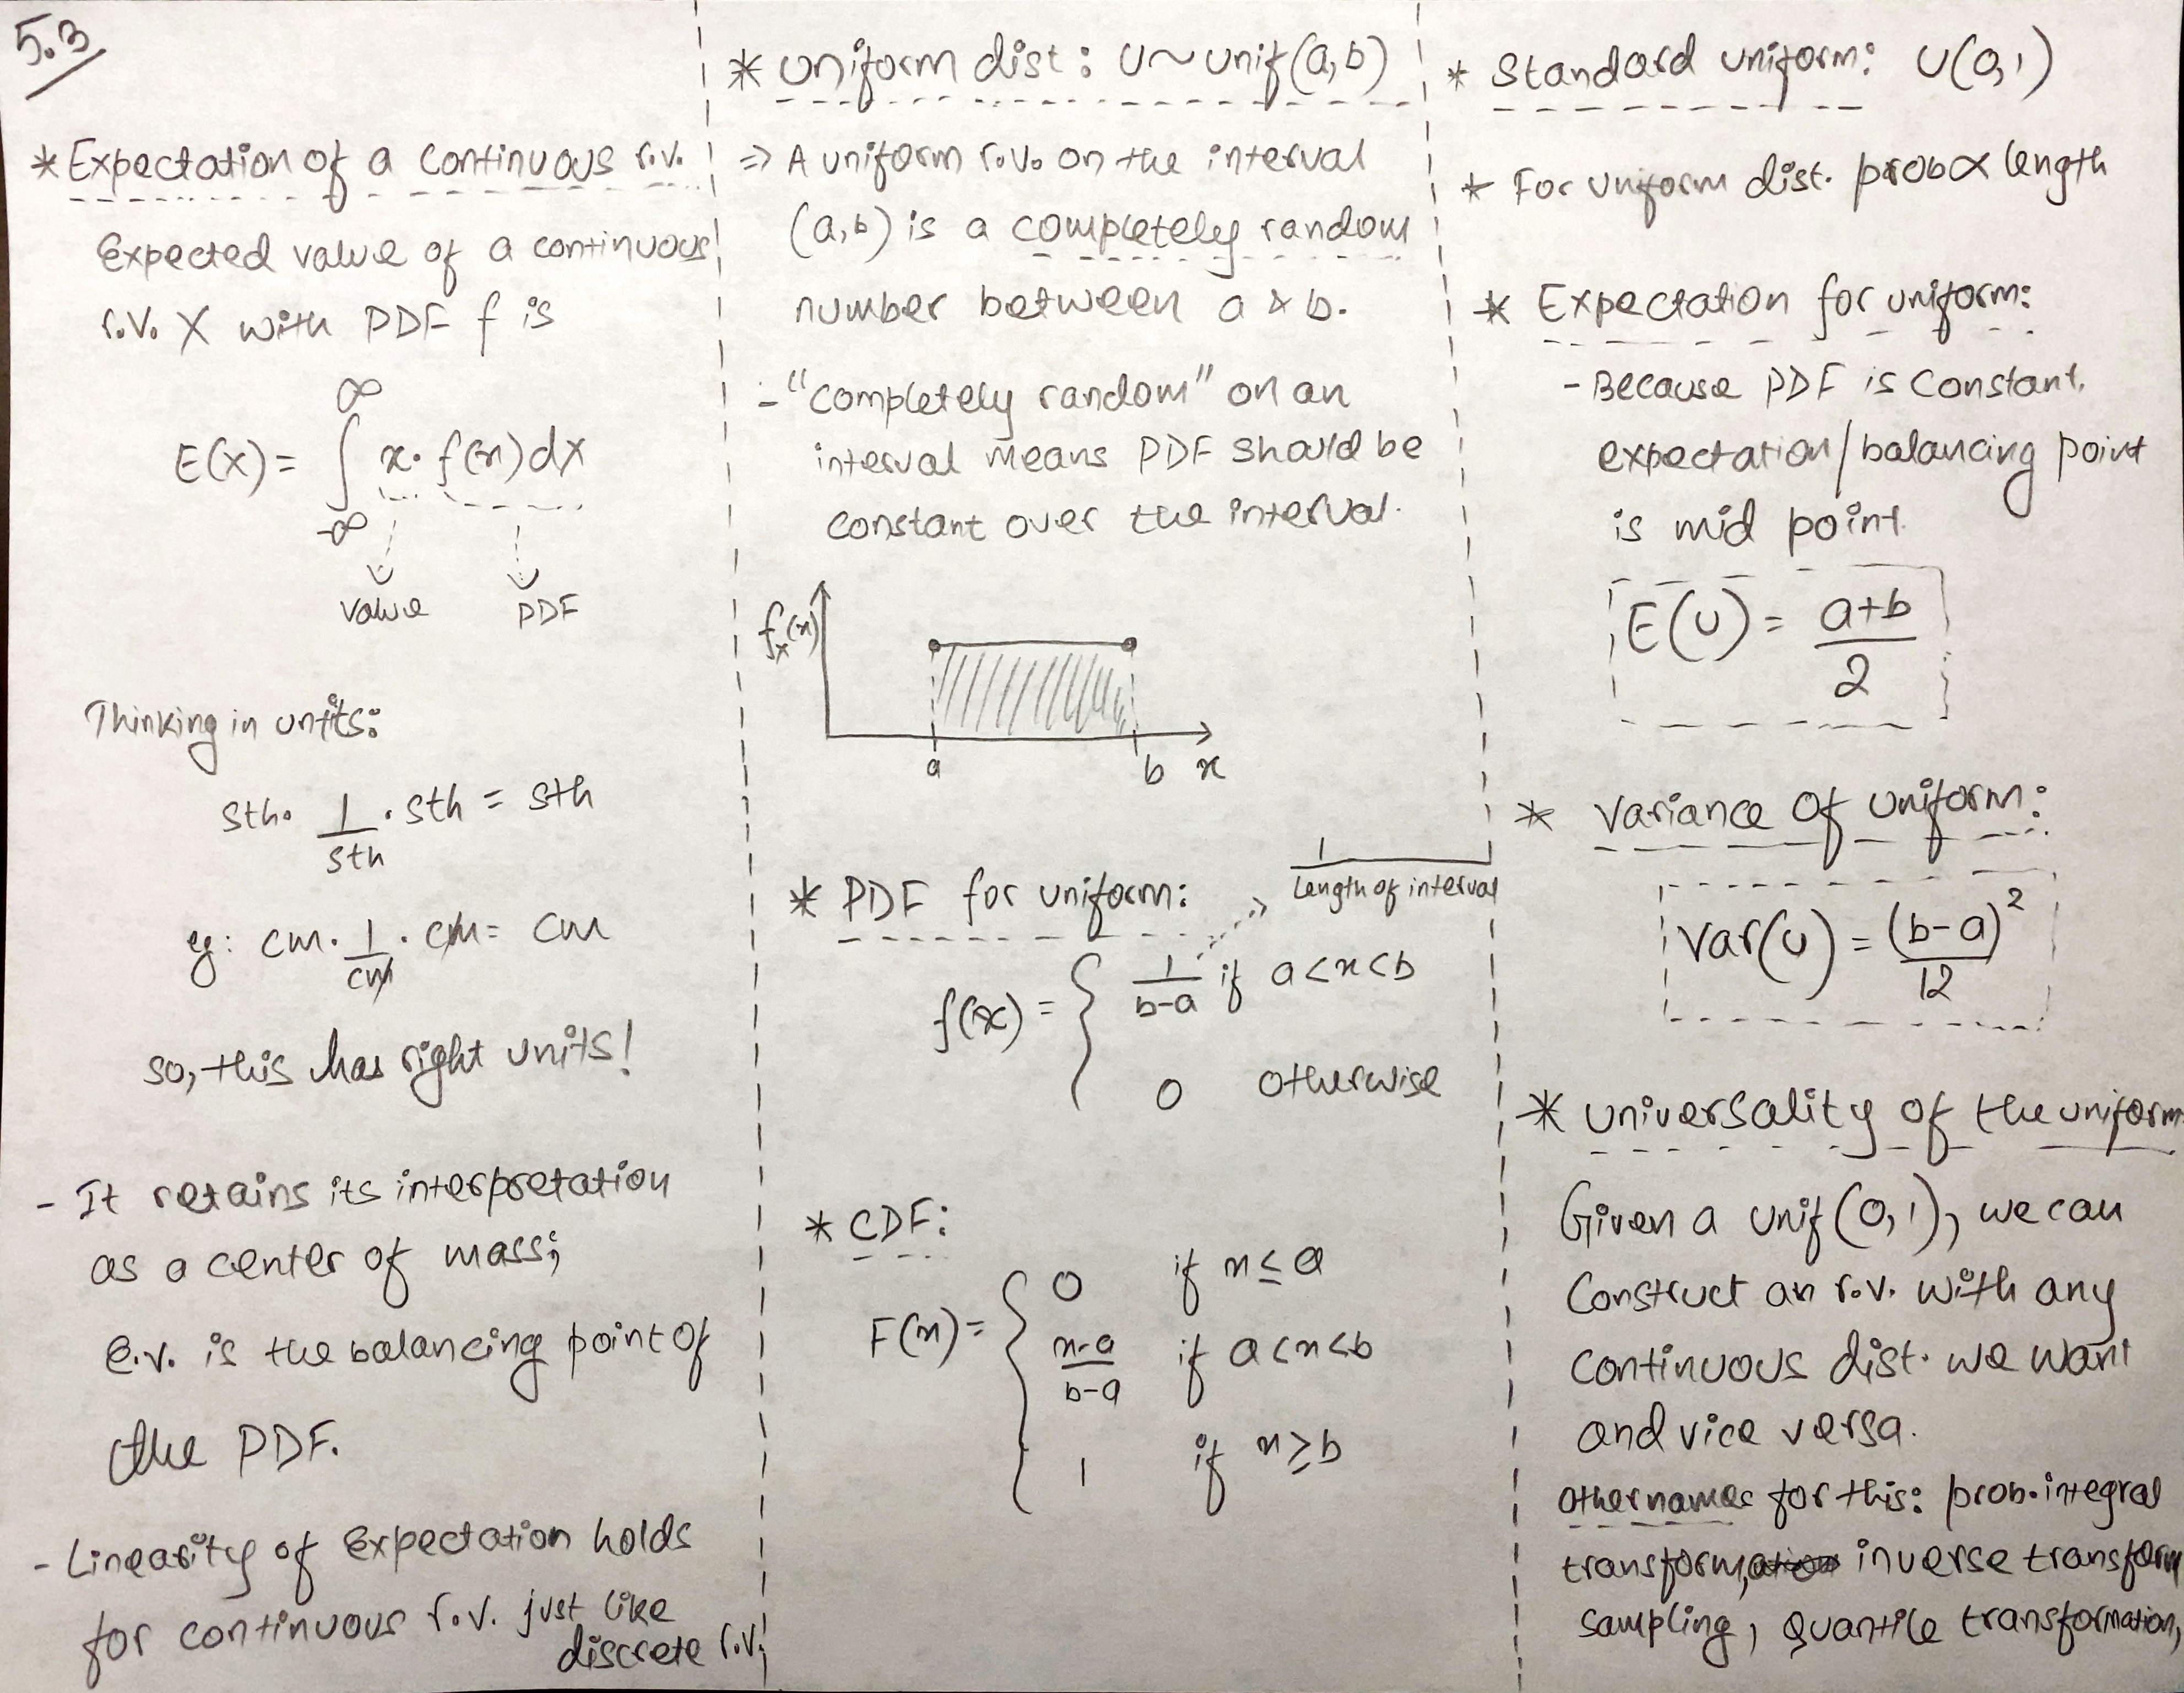 5.3
* Expectation of a continuous r.v.
Expected value of a continuous
r.v. X with PDF f is
E(X) = ∫_{-∞}^{∞} x · f(x) dx
value PDF
Thinking in units:
sth · 1/sth · sth = sth
eg: cm · 1/cm · cm = cm
so, this has right units!
- It retains its interpretation
as a center of mass;
e.v. is the balancing point of
the PDF.
- Linearity of expectation holds
for continuous r.v. just like
discrete r.v.
* Uniform dist: U~Unif(a,b)
⇒ A uniform r.v. on the interval
(a,b) is a completely random
number between a & b.
- "completely random" on an
interval means PDF should be
constant over the interval.
f_X(x)
a b x
* PDF for uniform:
1/Length of interval
f(x) = { 1/(b-a) if a<x<b
0 otherwise
* CDF:
F(x) = { 0 if x ≤ a
(x-a)/(b-a) if a<x<b
1 if x ≥ b
* Standard uniform: U(0,1)
* For uniform dist. prob ∝ length
* Expectation for uniform:
- Because PDF is constant,
expectation/balancing point
is mid point.
E(U) = (a+b)/2
* Variance of uniform:
Var(U) = (b-a)²/12
* Universality of the uniform
Given a Unif(0,1), we can
construct an r.v. with any
continuous dist. we want
and vice versa.
Other names for this: prob. integral
transform, inverse transform
sampling, Quantile transformation,